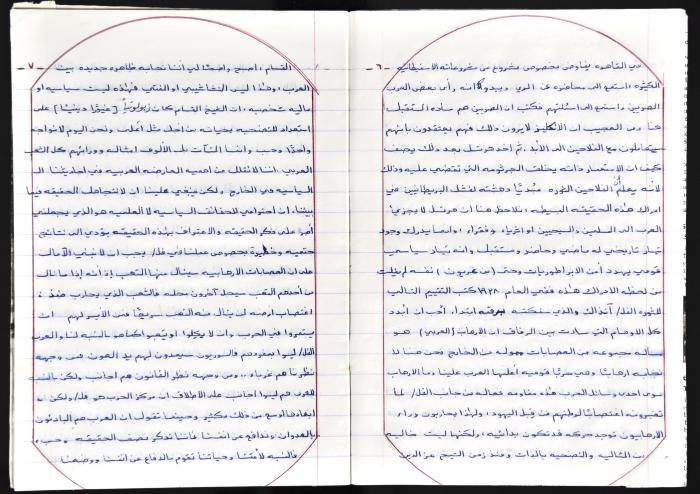 - ٦ -
في القاهره يفاوض بخصوص مشروع من مشروعاته الاستيطانيه
الكثيره استمع الى محاضره في الري ويبدو كانه رأى بعض العرب
المصريين واستمع الى اسئلتهم فكتب ان المصريين هم ساده المستقبل
هنا ومن العجيب ان الانكليز لا يرون ذلك فهم يعتقدون بانهم
سيتعاملون مع الفلاحين الى الأبد. ثم اخذ هرتسل بعد ذلك يصف
كيف ان الاستعمار ذاته يخلق الجرثومه التي تقضي عليه وذلك
لأنه يعلم الفلاحين الثوره مبديًا دهشته لفشل البريطانيين في
ادراك هذه الحقيقه البسيطه، نلاحظ هنا ان هرتسل لا يجزيء
العرب الى مسلمين والمسيحيين او اثرياء وفقراء، وانما يدرك وجود
تيار تاريخي له ماضي وحاضر ومستقبل وانه تيار سياسي
قومي يهدد أمن الامبراطوريات وحتى (بن غوريون) نفسه لم يفلت
من لحظه الادراك هذه ففي العام ١٩٣٨ كتب التقييم التالي
للثوره الفل/ آنذاك والذي سنكتبه ابتداء احب ان أبدد
كل الاوهام التي سادت بين الرفاق ان الارهاب (العربي) هو
مسأله مجموعه من العصابات ممولة من الخارج نحن هنا لا
نجابه ارهابًا وهي حربًا قوميه أعلنها العرب علينا وما الارهاب
سوى احدى وسائل العرب هذه مقاومه فعاله من جانب الفل/ لما
يعتبرونه اغتصابًا لوطنهم من قبل اليهود، ولهذا يحاربون وراء
الارهابيون توجد حركه قد تكون بدائيه، ولكنها ليست خاليه
من المثاليه والتضحيه بالذات ومنذ زمن الشيخ عز الدين
- ٧ -
القسام، اصبح واضحًا لي اننا نجابه ظاهره جديده بين
العرب، وهذا ليس النشاشيبي او المفتي فهذه ليست سياسيه او
ماليه شخصيه، ان الشيخ القسام كان زيولوتيًا [غيورًا دينيًا] على
استعداد للتضحيه بحياته من اجل مثل أعلى ونحن اليوم لا نواجه
واحدًا وحسب وانما المئات بل الألوف امثاله وورائهم كل الشعب
العربي، اننا لا نقلل من اهميه المعارضه العربيه في احاديثنا الـ
السياسيه في الخارج ولكن ينبغي علينا ان لا نتجاهل الحقيقه فيما
بيننا، ان احترامي للحقائق السياسيه لا العلميه هو الذي يجعلني
أصر على ذكر الحقيقه والاعتراف بهذه الحقيقه يؤدي الى نتائج
حتميه وخطيره بخصوص عملنا في فل/ يجب ان لا نبني الآمال
على ان العصابات الارهابيه سينال منها التعب إذ أنه إذا ما نال
من احدهم التعب سيحل آخرون محله فالشعب الذي يحارب ضد
اغتصاب ارضه لن ينال منه التعب سريعًا
يستمروا في الحرب وان لا يكلوا او يتعبوا كما هو بالنسبه لنا، والعرب
الفل/ ليسوا بمفردهم فالسوريون سيمدون لهم يد العون
نظرنا هم غرباء .. ومن وجهه نظر القانون هم اجانب ولكن بالنسبه
للعرب هم ليسوا اجانب على الاطلاق ان مركز الحرب هو فل/ ولكن
ابعادها اوسع من ذلك بكثير وحينما نقول ان العرب هم البادئون
بالعدوان وندافع عن انفسنا فاننا نذكر نصف الحقيقه وحسب،
فبالنسبه لأمننا وحياتنا نقوم بالدفاع عن انفسنا ووضعنا